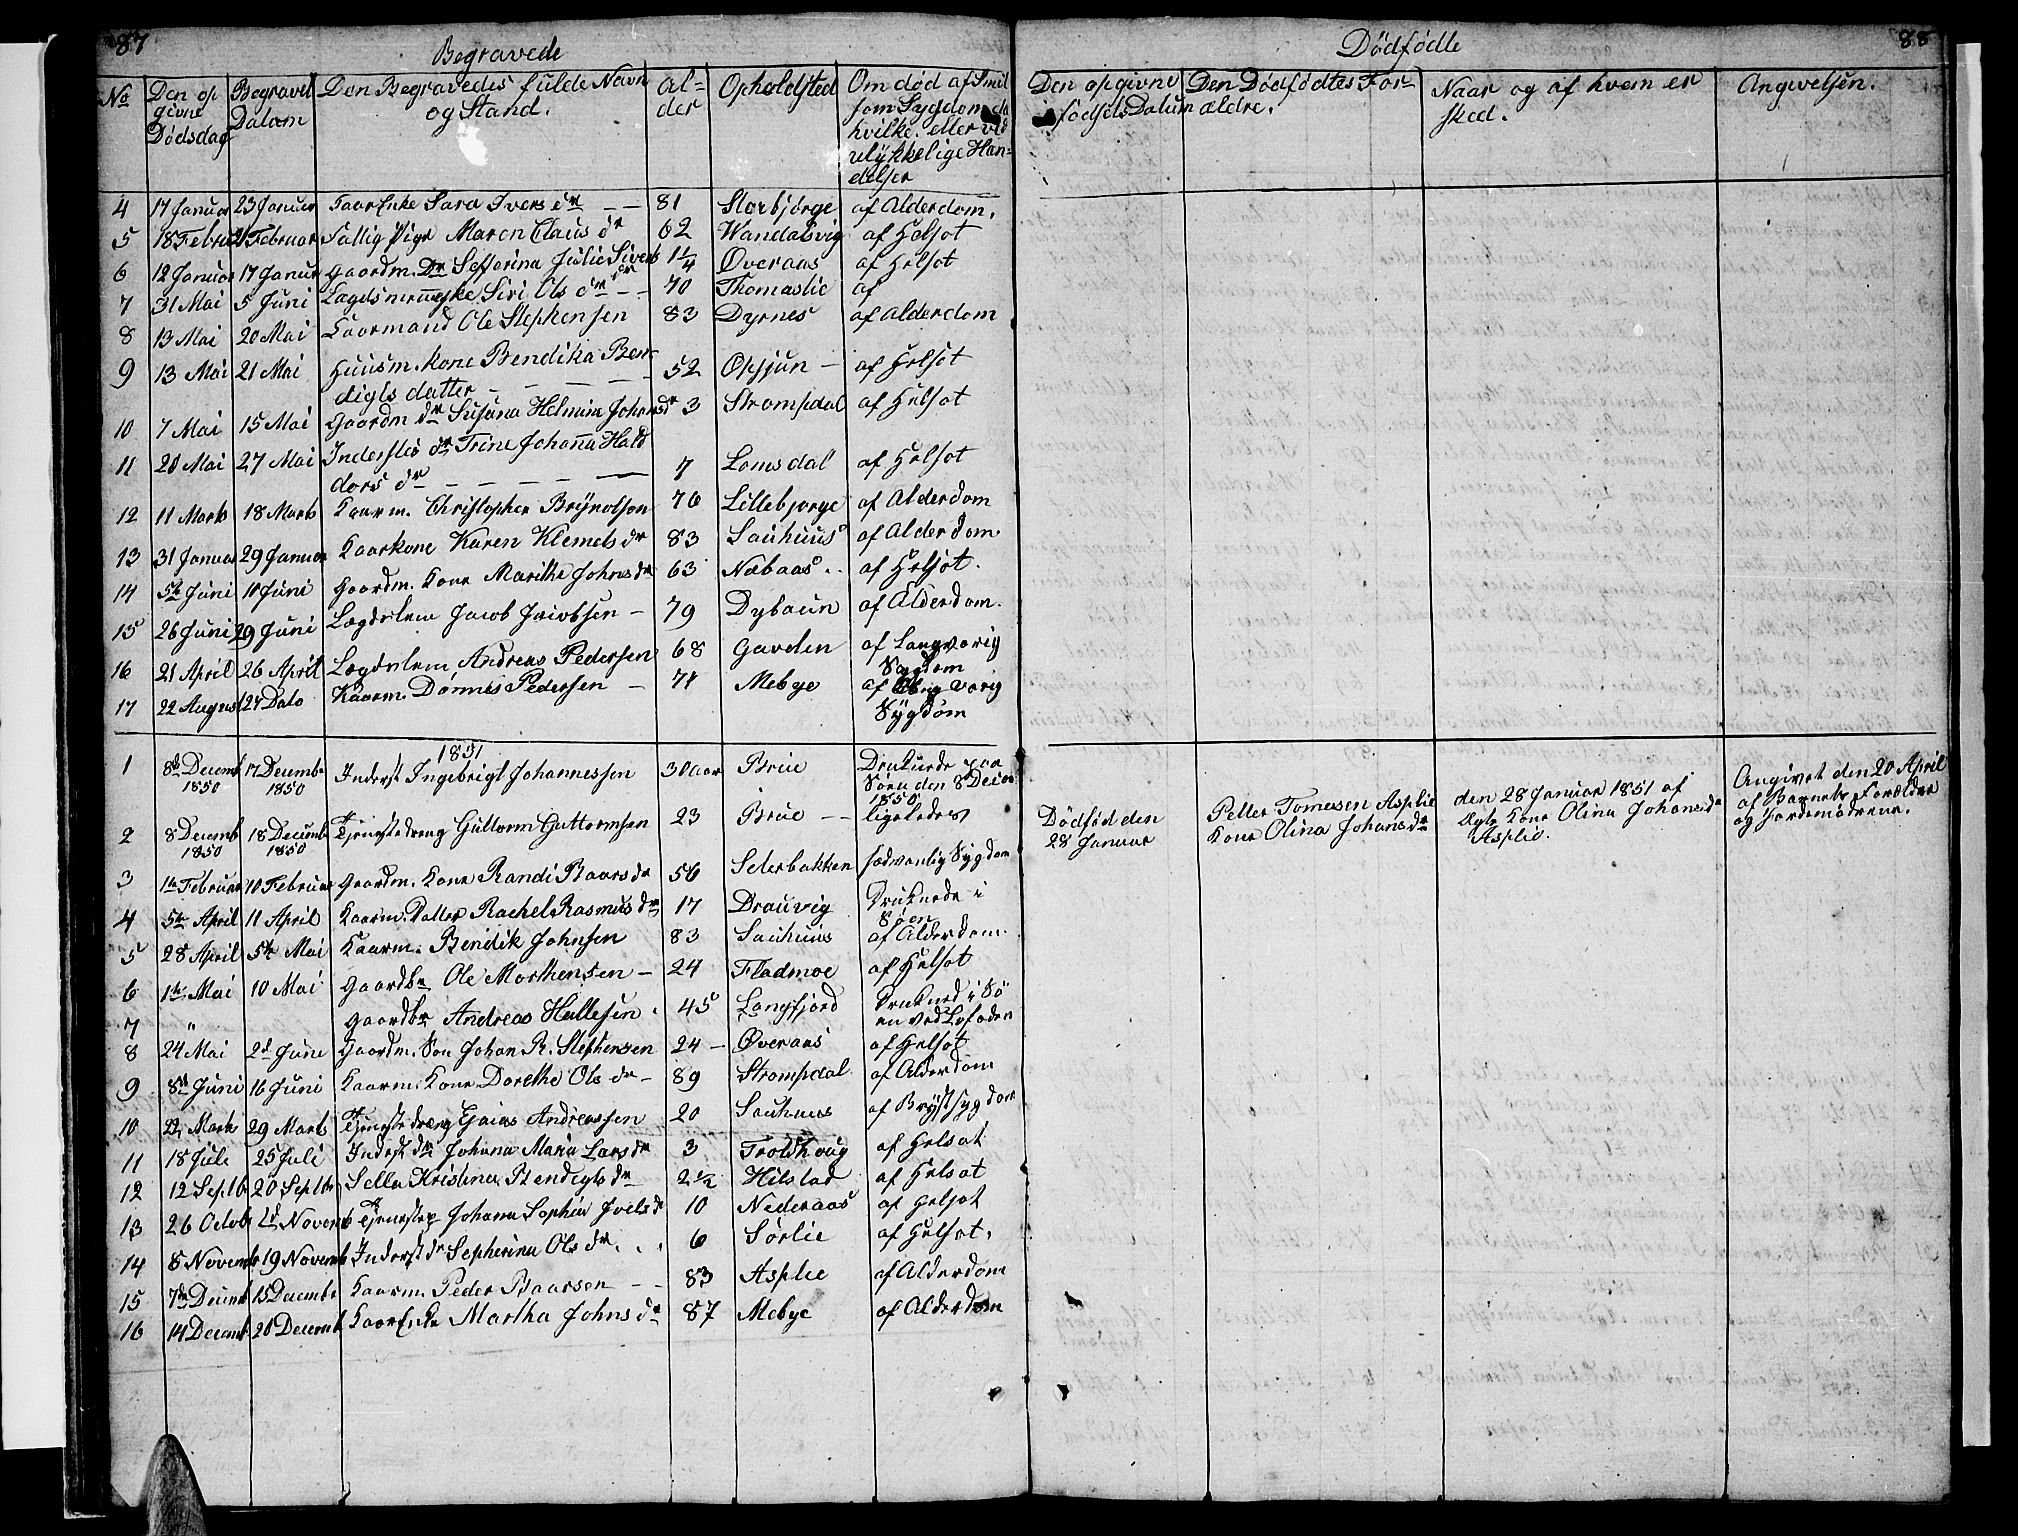 87
Begravede
No Den op givne Dødsdag Begravet Datom Den Begravedes fulde Navn og Stand. Al= der Opholdsted Om død af Smit som Sygdom da hvilke. eller ved ulykkelige Hæn= delser
4 17 Januar 23 Januar Kaar Enke Sara Ivers dr — — 81 Storbjørge af Alderdom.
5 18 Februar 21 Februar Fattig Pige Maren Claus dr 62 Wandalsvig af Helsot
6 12 Januar 17 Januar Gaardm. Dr Sefferina Julie Siverts dr 1 1/4 Øveraas af Helsot
7 31 Mai 5 Juni Lægdsmenneske Siri Ols dr — — 70 Thomaslie af
8 13 Mai 20 Mai Kaarmand Ole Stephensen 83 Dyrnes af Alderdom
9 13 Mai 21 Mai Huusm. kone Bendika Ben=
digts datter — — — — 52 af Helsot
10 7 Mai 15 Mai Gaardm dr Susana Helmina Johans dr 3 Strompdal af Helsot
11 20 Mai 27 Mai Inderstes dr Trine Johanna Hald
dors dr — — — — — 7 Lomsdal af Helsot
12 11 Marts 18 Marts Kaarm. Christopher Brynolsen 76 Lillebjørge af Alderdom
13 31 Januar 29 Januar Kaarkone Karen Klemets dr 83 Sauhuus af Alderdom
14 5te Juni 10 Juni Gaardm. Kone Marithe Johns dr 63 Næbaas . . af Helsot.
15 26 Juni 29 Juni Lægdslem Jacob Jacobsen — 79 Dybaun af Alderdom.
16 21 April 26 April Lægdslem Andreas Pedersen 68 Gavden af Langvarig
Sygdom
17 22 August 27 Dato Kaarm. Dønnes Pedersen — 71 Mebye af Langvarig
Sygdom
1851
1 8de Decemb 1850 17 Decembr 1850 Inderst Ingebrigt Johannessen 30 aar Brue Druknede paa
Søen den 8 Decem
1850
2 8 Decemb 1850 18 Decembr 1850 Tjenestedreng Guttorm Guttormsen 23 Brue — — ligeledes
3 1te Februar 10 Februar Gaardm. Kone Randi Baars dr 56 Selerbakken sædvanlig Sygdom
4 5te April 11 April Kaarm. Datter Rachel Rasmus dr 17 Drauvig Druknede i
Søen
5 28 April 5te Mai Kaarm. Bendik Johnsen 83 Sauhuus af Alderdom
6 1te Mai 10 Mai Gaardbr Ole Morthensen — 24 Fladmoe af Helsot
7 " Gaardbr Andreas Hallesen . 45 Langfjord Druknet i Sø
en ved Lofoden
8 24 Mai 2d June Gaardm. Søn Johan R. Stephensen 24 — Øveraas af Helsot
9 8de Juni 16 Juni Kaarm. Kone Dorethe Ols dr — 89 Strompdal af Alderdom
10 22 Marts 29 Marts Tjenestedreng Andreassen 20 Sauhuus af Brystsygdom
11 18 Juli 25 Juli Inderst dr Johana Maria Lars dr 3 Troldhoug af Helsot
12 12 Septbr 20 Septbr Sella Kristina Bendigts dr 2 1/2 Hilstad af Helsot
13 26 Octobr 2d Novemb Tjenestep Johana Sophia Joels dr 10 Nederaas af Helsot
14 8 Novemb 19 Novemb Inderst dr Sepherina Ols dr . . . 6 Sørlie af Helsot.
15 7de Decemb 15 Decembr Kaarm. Peder Baarsen — — 83 Asplie af Alderdom
16 14 Decemb 20 Decemb Kaar Enke Martha Johns dr 87 Mebye af Alderdom
88
Dødfødte
Den opgivne fødsels Datum Den Dødfødtes For= ældre. Naar og af hvem er skeed. Angivelsen.
Dødfød den
28 Januar
Petter Tomesen Asplie
Kone Olina Johans dr
den 28 Januar 1851 af
Ægte Kone Olina Johans dr
Asplie.
Angivet den 20 April
af Barnets Forældre
og Jordemødrene.